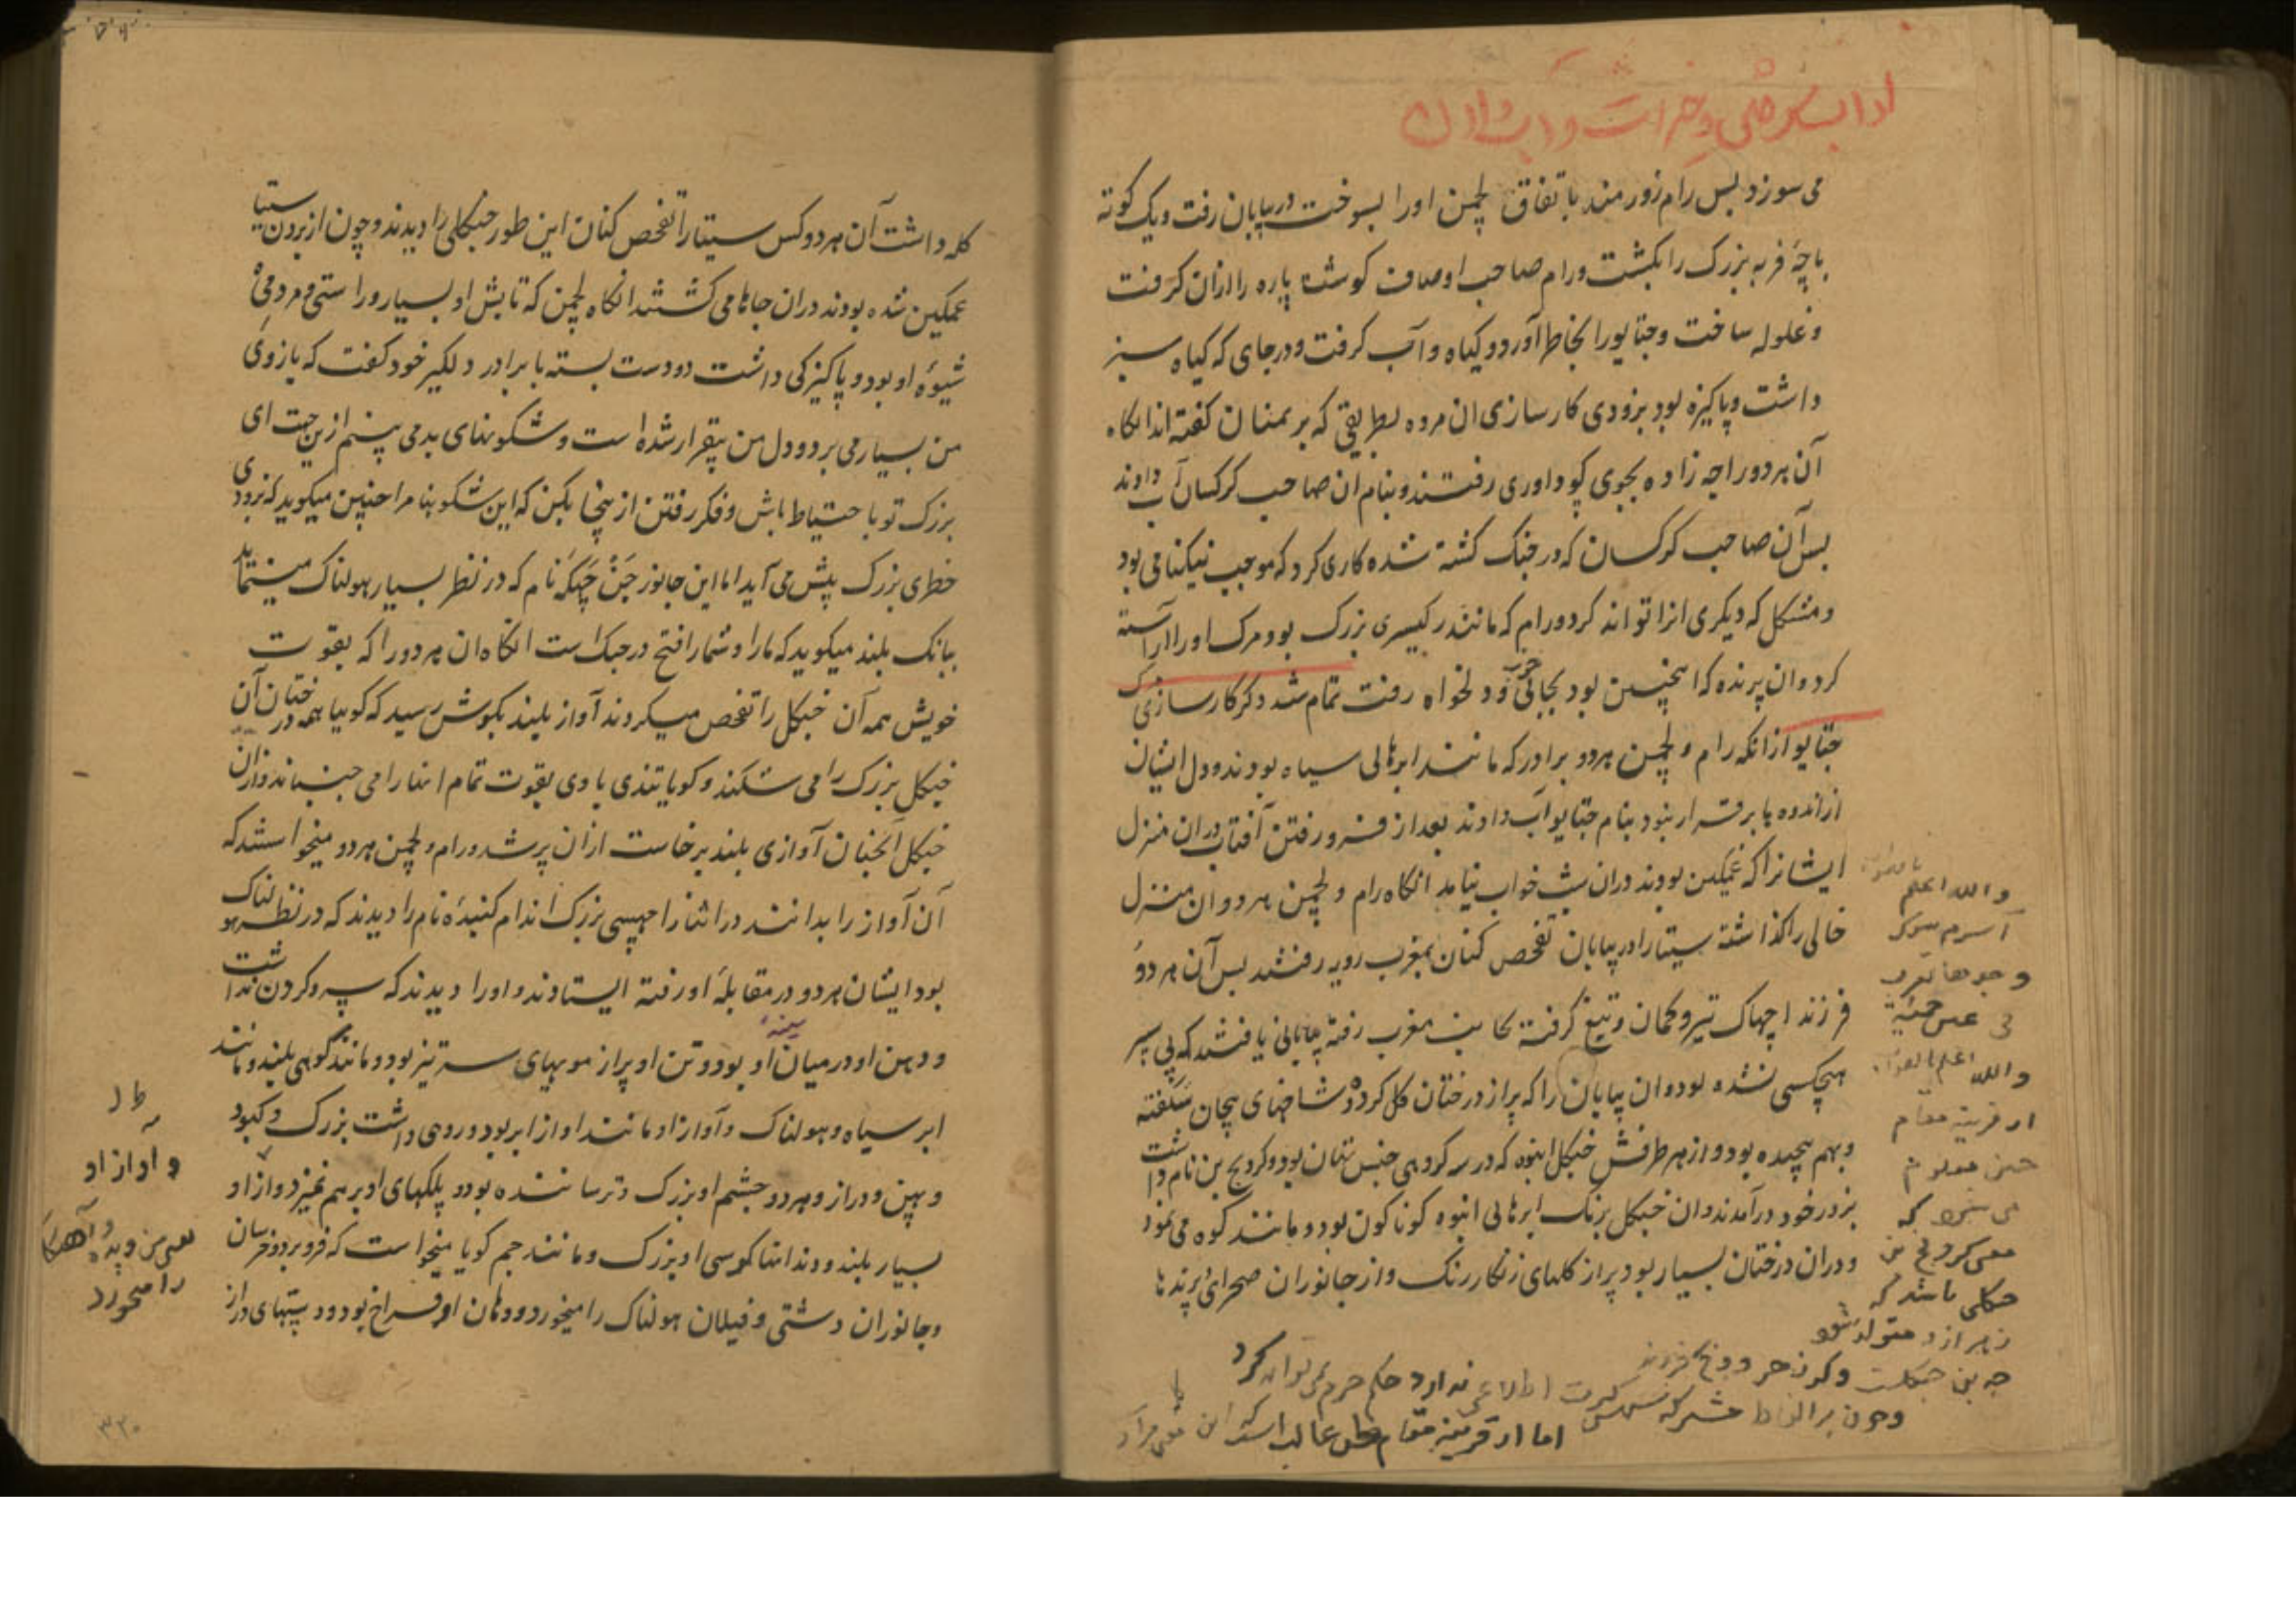 می سوزد پس رام زورمند باتفاق لچمن اورا بسوخت در بیابان رفت ویک کوته
باچهٔ فربه بزرک را بکشت ورام صاحب اوصاف کوشت پاره را ازان کرفت
وغلوله ساخت وجتایورا بخاطر آورد وکیاه وآب کرفت ودرجای که کیاه سبز
داشت وپاکیزه بود بزودی کارسازی ان مرده بطریقی که برهمنان کفته اند انکاه
آن هردو راجه زاده بجوی کوداوری رفتند وبنام ان صاحب کرکسان آب دادند
پس آن صاحب کرکسان که در جنک کشته شده کاری کرد که موجب نیکنامی بود
ومشکل که دیکری انرا تواند کرد ورام که مانند رکیسری بزرک بود مرک اورا آراسته
کرد وان پرنده که اینچنین بود بجائی خوب ودلخواه رفت تمام شد ذکر کارسازی مرک
جتایو ازانکه رام ولچمن هردو برادر که مانند ابرهائی سیاه بودند ودل ایشان
ازاندوه پابرقرار نبود بنام جتایو آب دادند بعد از فرو رفتن آفتاب دران منزل
ایشانرا که غمکین بودند دران شب خواب نیامد انکاه رام ولچمن هردو ان منزل
خالی را کذاشته سیتا را در بیابان تفحص کنان بمغرب رویه رفتند پس آن هردو
فرزند اچهاک تیر وکمان وتیغ کرفته بجانب مغرب رفته بیابانی یافتند که پی سپر
هیچکسی نشده بود وان بیابان را که پر از درختان کل کرده وشاخهای پیچان شکفته
وبهم پیچیده بود واز هر طرفش جنکل انبوه که در سه کروهی جنس تهان بود وکرونج بن نام داشت
بزدر خود درآمدند وان جنکل برنک ابرهائی انبوه کوناکون بود ومانند کوه می نمود
ودران درختان بسیار بود پر از کلهای رنکارنک واز جانوران صحرای وپرندها
والله اعلم
والله اعلم
از قرینه مقام
چنین معلوم
می شود که
معنی کرونج بن
جنکلی باشد که
اطلاعی ندارد حکم جزم نمی تواند کرد
اما از قرینه مقام ظن غالب است که این معنی مراد
کله داشت آن هردو کس سیتا را تفحص کنان این طور جنکلی را دیدند وچون از بردن سیتا
غمکین شده بودند دران جاها می کشتند انکاه لچمن که تابش او بسیار وراستی ومردمی
شیوهٔ او بود وپاکیزکی داشت دودست بسته با برادر دلکیر خود کفت که بازوی
من بسیار می پرد ودل من بیقرار شده است وشکونهای بد می بینم ازین جهت ای
بزرک تو با حتیاط باش وفکر رفتن از ینجا بکن که این شکونها مرا چنین میکوید که بزودی
خطری بزرک پیش می آید اما این جانور جَنْ چَپکَه نام که در نظر بسیار هولناک مینماید
ببانک بلند میکوید که مارا وشمارا فتح در جنک است انکاه ان هردو را که بقوت
خویش همه آن جنکل را تفحص میکردند آواز بلند بکوش رسید که کویا همه درختان آن
جنکل بزرک را می شکند وکویا تندی بادی بقوت تمام انها را می جنباند وازان
جنکل آنچنان آوازی بلند برخاست ازان پر شد ورام ولچمن هردو میخواستند که
آن آواز را بدانند در اثنا راچهسی بزرک اندام کنبده نام را دیدند که در نظر هولناک
بود ایشان هردو در مقابلهٔ او رفته ایستادند واورا دیدند که سر وکردن نداشت
ودهن او در میان سینهٔ او بود وتن او پر از مویهای ستر تیز بود ومانند کوهی بلند ومانند
ابر سیاه وهولناک وآواز او مانند اواز ابر بود وروی داشت بزرک وکبود
وپهن ودراز وهردو چشم او بزرک وترساننده بود وپلکهای او برهم نمیزد واز او
بسیار بلند ودندانها کرسی او بزرک ومانند جم کویا میخواست که فرو برد وخرسان
وجانوران دشتی وفیلان هولناک را میخورد ودهان او فراخ بود ودستهای دراز
واواز او
را میخورد
۳۳۰